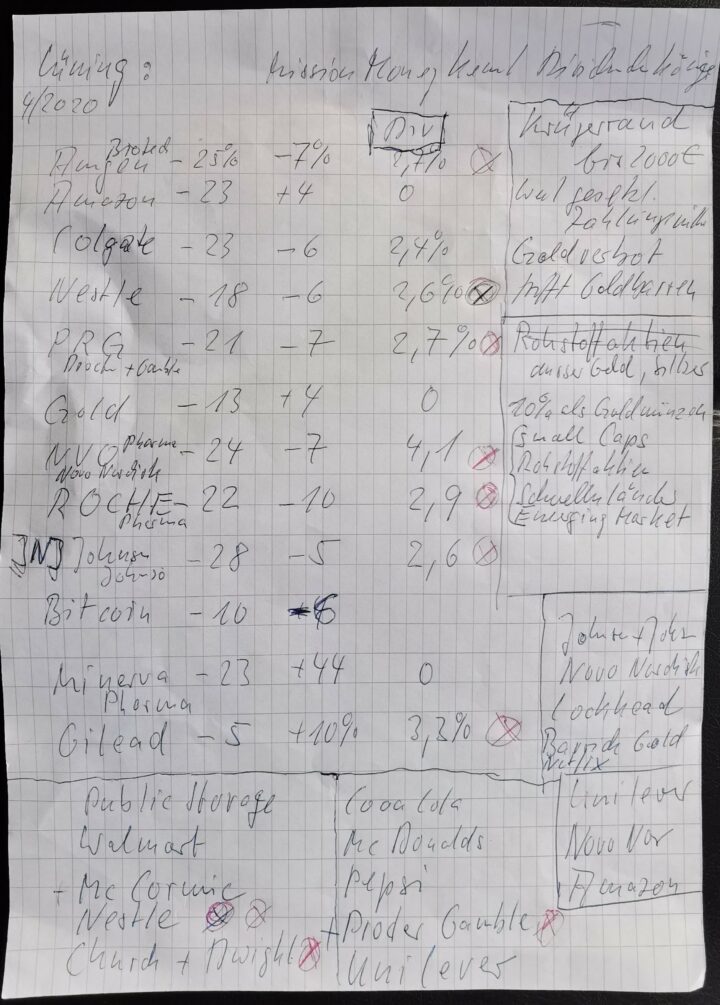 Lüning: Mission Money kennt Dividendenkönige
4/2020
Div
Biotech
Amgen -25% -7% 2,7%
Amazon -23 +4 0
Colgate -23 -6 2,4%
Nestle -18 -6 2,6%
PRG -21 -7 2,7%
Procter + Gamble
Gold -13 +4 0
NVO Pharma -24 -7 4,1
Novo Nordisk
ROCHE -22 -10 2,9
Pharma
JNJ Johnson -28 -5 2,6
Johnson
Bitcoin -10 -6
Minerva -23 +44 0
Pharma
Gilead -5 +10% 3,3%
Krügerrand
bis 2000€
weil gesetzl.
Zahlungsmittel
Goldverbot
trifft Goldbarren
Rohstoffaktien
ausser Gold, Silber
10% als Goldmünzen
Small Caps
Rohstoffaktien
Schwellenländer
Emerging Market
Johnson + John
Novo Nordisk
Lockhead
Barrick Gold
Netflix
Unilever
Novo Nor
Amazon
Public Storage
Walmart
+ Mc Cormic
Nestle
Church + Dwight
Coca Cola
Mc Donalds
Pepsi
+ Procter Gamble
Unilever